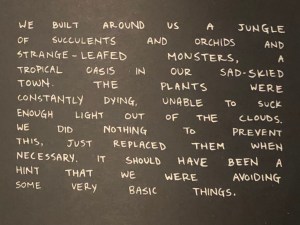 WE BUILT AROUND US A JUNGLE
OF SUCCULENTS AND ORCHIDS AND
STRANGE-LEAFED MONSTERS, A
TROPICAL OASIS IN OUR SAD-SKIED
TOWN. THE PLANTS WERE
CONSTANTLY DYING, UNABLE TO SUCK
ENOUGH LIGHT OUT OF THE CLOUDS.
WE DID NOTHING TO PREVENT
THIS, JUST REPLACED THEM WHEN
NECESSARY. IT SHOULD HAVE BEEN A
HINT THAT WE WERE AVOIDING
SOME VERY BASIC THINGS.